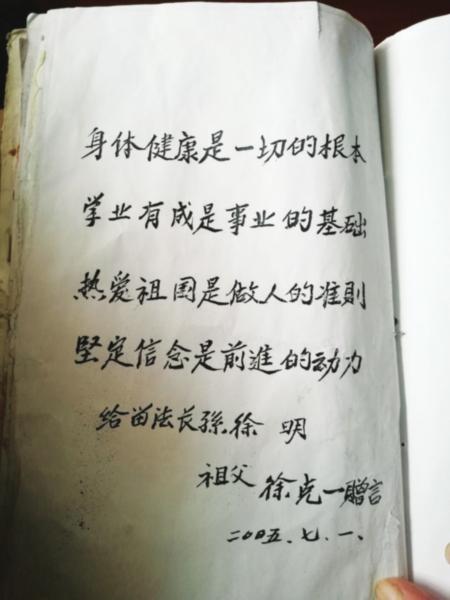 身体健康是一切的根本
学业有成是事业的基础
热爱祖国是做人的准則
堅定信念是前進的动力
给留法长孫徐 明
祖父 徐克一贈言
二00五.七.一.